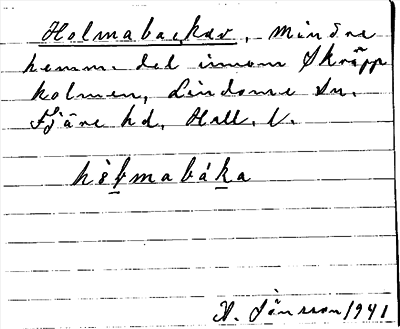 Holmabackar, mindre
hemm. del inom Skräpp
holmen, Lindome Sn.
Fjäre hd, Hall. l.
hòḷmabáka
A. Jönsson 1941